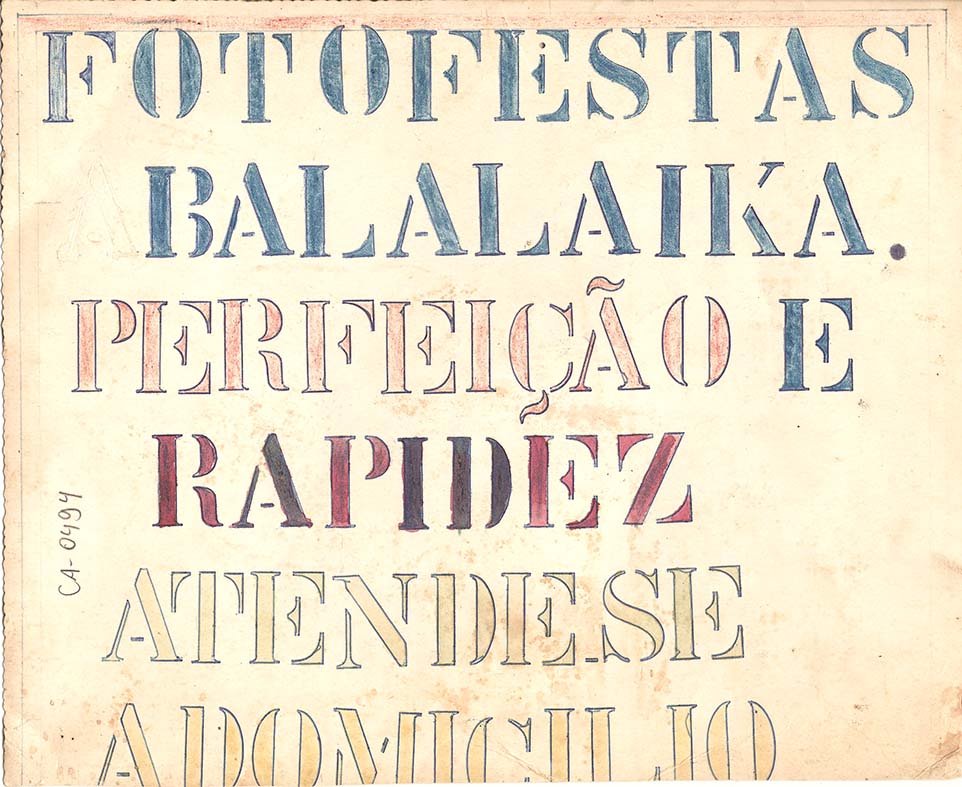 FOTOFESTAS
A BALALAIKA.
PERFEIÇÃO E
RAPIDÉZ
ATENDE-SE
A DOMICILIO
CA-0494